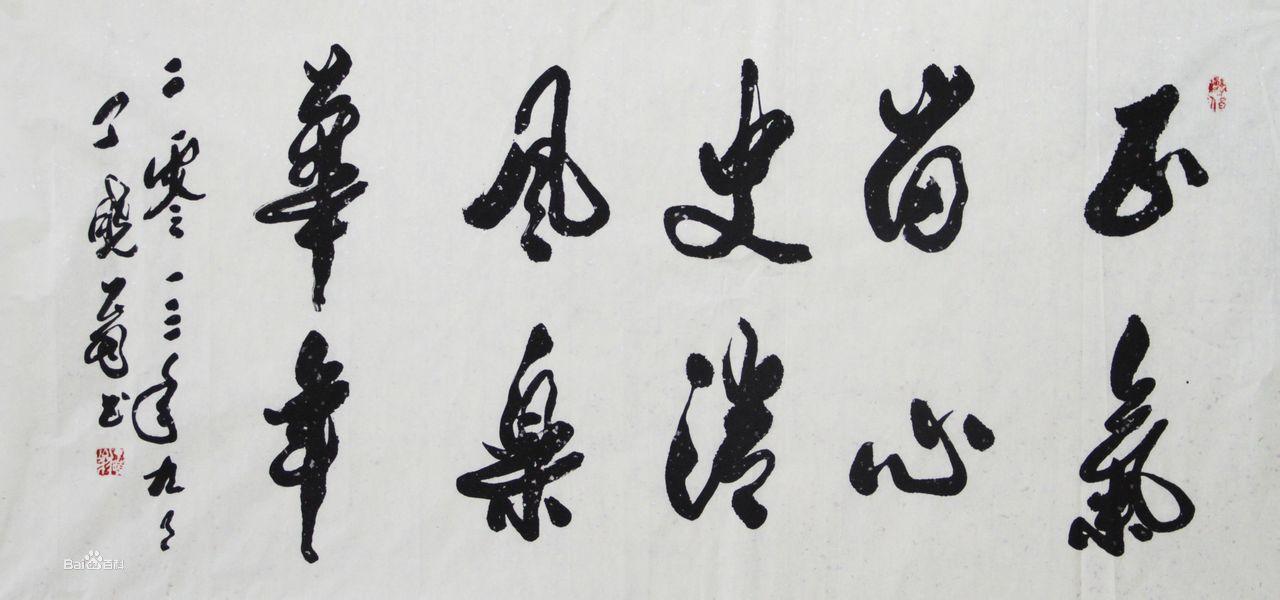 正氣
留心
史清
風樂
華年
二零一三年九月
丁曉 书
Bai 百科